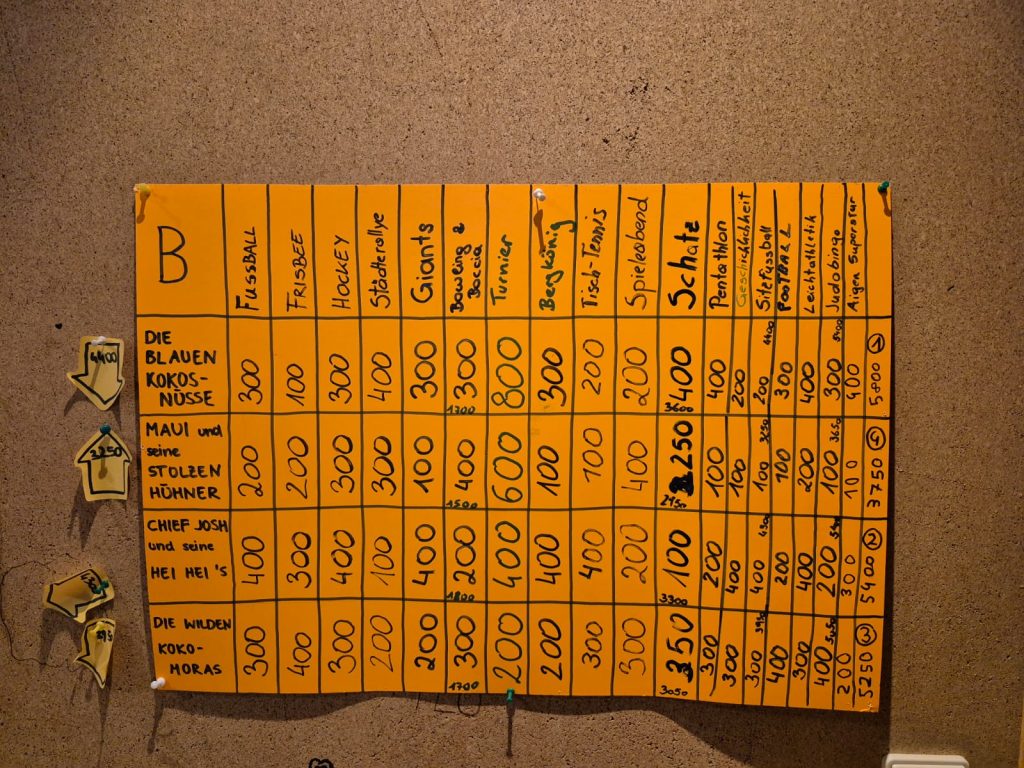 B
FUSSBALL
FRISBEE
HOCKEY
Städterollye
Giants
Bowling &
Boccia
Turnier
Bergkönig
Tisch-Tennis
Spieleabend
Schatz
Pentathlon
Geschicklichkeit
Sitzfussball
Leichtathletik
Judobingo
DIE
BLAUEN
KOKOS-
NÜSSE
300 100 300 400 300 300 800 300 200 200 400 400 200 200 300 400 300 400 5800 1
1700 3600 4400 5400
MAUI und
seine
STOLZEN
HÜHNER
200 200 300 300 100 400 600 100 100 400 250 100 100 100 100 200 100 100 3750 4
1500 3250 3650
CHIEF JOSH
und seine
HEI HEI'S
400 300 400 100 400 200 400 400 400 200 100 200 400 400 200 400 200 300 5400 2
1800 3300 4300
DIE WILDEN
KOKO-
MORAS
300 400 300 200 200 300 200 200 300 300 350 300 300 300 400 300 400 200 5250 3
1700 3050 5050
4400
3250